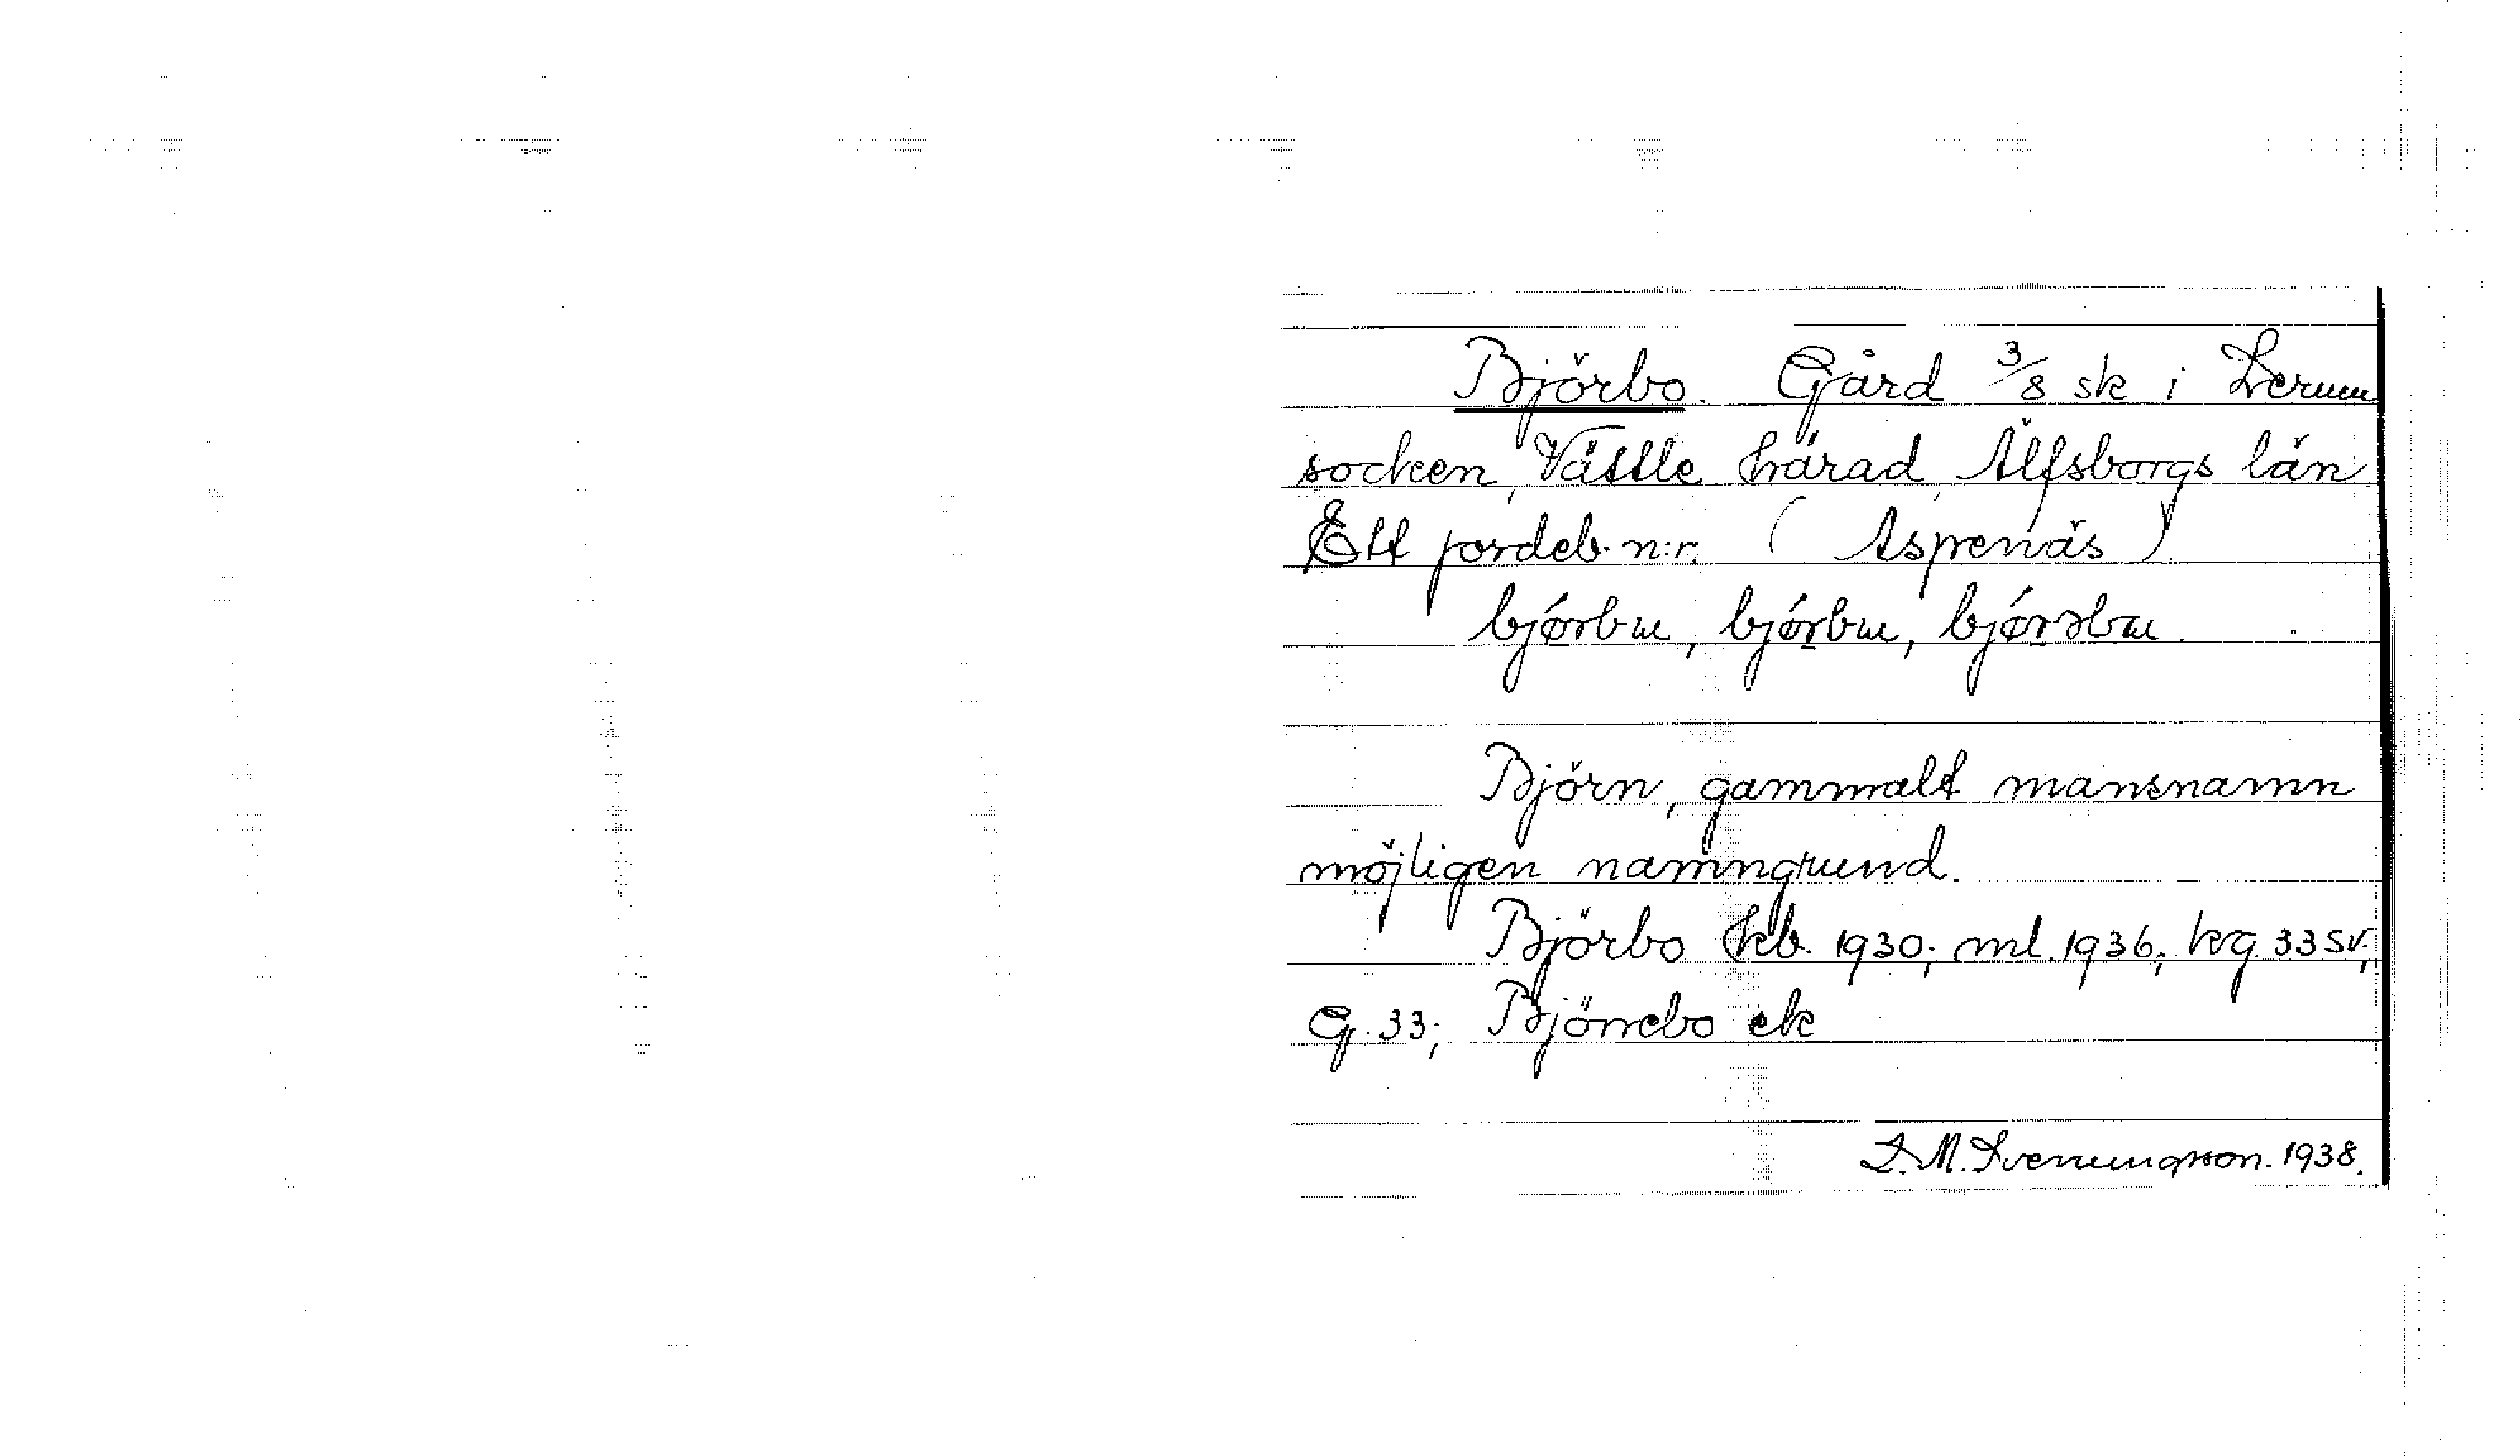 Björbo. Gård 3/8 sk i Lerum
socken, Vättle härad, Älfsborgs län
Ett jordeb. n:r. (Aspenäs).
Björn, gammalt mansnamn
möjligen namngrund.
Björbo kb. 1930; ml. 1936; kg. 33 SV;
G. 33; Björnebo ek
M. Svenungsson. 1938.